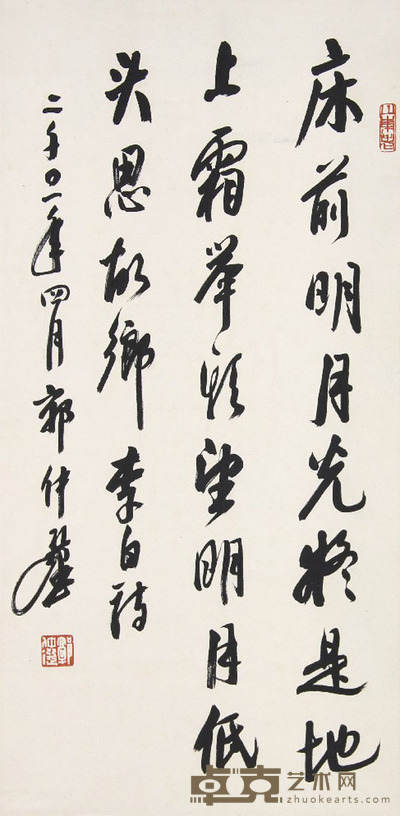 床前明月光疑是地
上霜举頭望明月低
头思故鄉李白诗
二千〇一年四月郭仲選
郭仲選
卓克艺术网
zhuokearts.com